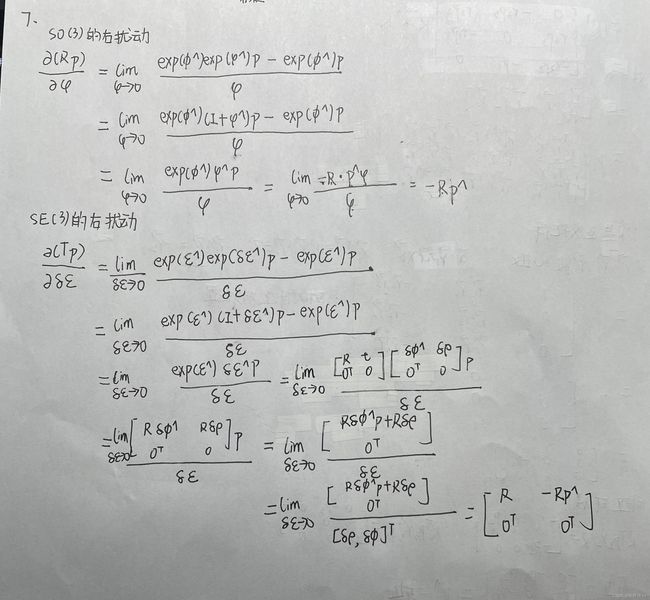 7.
SO(3)的右扰动
∂(Rp)/∂φ = lim φ→0 (exp(ϕ^)exp(φ^)p - exp(ϕ^)p)/φ
= lim φ→0 (exp(ϕ^)(I+φ^)p - exp(ϕ^)p)/φ
= lim φ→0 (exp(ϕ^)φ^p)/φ = lim φ→0 (-R·p^φ)/φ = -Rp^
SE(3)的右扰动
∂(Tp)/∂δε = lim δε→0 (exp(ε^)exp(δε^)p - exp(ε^)p)/δε
= lim δε→0 (exp(ε^)(I+δε^)p - exp(ε^)p)/δε
= lim δε→0 (exp(ε^)δε^p)/δε = lim δε→0 ([R t; 0ᵀ 0][δϕ^ δρ; 0ᵀ 0]p)/δε
= lim δε→0 ([Rδϕ^ Rδρ; 0ᵀ 0]p)/δε = lim δε→0 [Rδϕ^p+Rδρ; 0ᵀ]/δε
= lim δε→0 [Rδϕ^p+Rδρ; 0ᵀ]/[δρ, δϕ]ᵀ = [R -Rp^; 0ᵀ 0ᵀ]